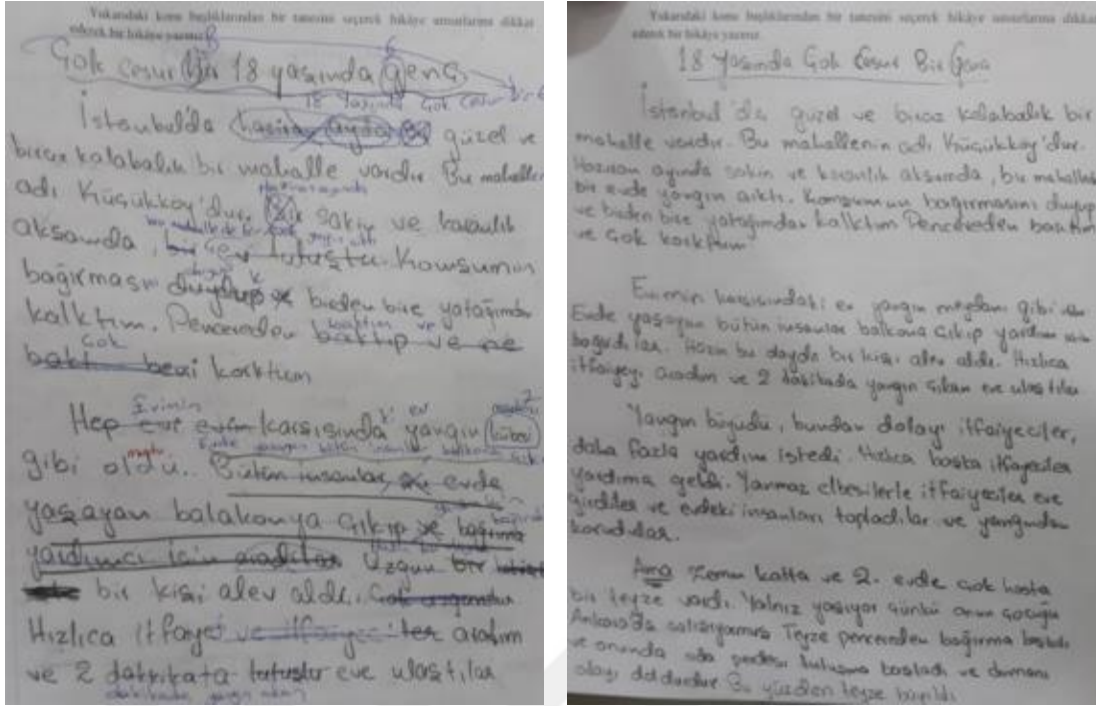 Yukarıdaki konu başlıklarından bir tanesini seçerek hikâye unsurlarına dikkat
ederek bir hikâye yazınız.
8
6
Çok Cesur bir 18 yaşında genç
18 yaşında Çok Cesur bir
İstanbul'da güzel ve
biraz kalabalık bir mahalle vardır Bu mahallenin
adı Küçükköy'dur. Bir sakin ve karanlık
aksamda, bir ev tutuştu. Komsumin
bağırması duydup birden bire yatağımdan
kalktım. Pencereden baktıp ve ne
baktı beni korktum
Evimin
Hep eve evin karsısında yangın kübesi
gibi oldu. Bütün insanlar evde
yaşayan balakonya çıkıp ve bağırma
yardımcı için aradılar Uzgun bir
bir kisi alev aldı.
Hızlıca itfaiye ve itfaiyeciler aradım
ve 2 dakkikata tutustu eve ulaştılar
Yukarıdaki konu başlıklarından bir tanesini seçerek hikâye unsurlarına dikkat
ederek bir hikâye yazınız.
18 Yasında Çok Cesur Bir Genç
İstanbul'da güzel ve biraz kalabalık bir
mahalle vardır. Bu mahallenin adı Küçükköy'dur.
Haziran ayında sakin ve karanlık aksamda, bu mahallede
bir evde yangın çıktı. Komsumun bağırmasını duyup
ve birden bire yatağımdan kalktım Pencereden baktım
ve Çok korktum
Evimin karsısındaki ev yangın meydanı gibi
Evde yaşayan bütün insanlar balkona çıkıp yardım için
bağırdılar. bir kişi alev aldı. Hızlıca
itfaiyeyi aradım ve 2 dakikada yangın çıkan eve ulaştılar.
Yangın büyüdü, bundan dolayı itfaiyeciler,
daha fazla yardım istedi. Hızlıca baska itfaiyeciler
yardıma geldi. Yanmaz elbiselerle itfaiyeciler eve
girdiler ve evdeki insanları topladılar ve yangından
korudular.
Ama zemin katta ve 2. evde çok hasta
bir teyze vardı. Yalnız yasıyor çünkü onun çocuğu
Ankara'da Teyze pencereden bağırma basladı
ve anında oda perdesi tutuşma basladı ve dumanı
Bu yüzden teyze bayıldı